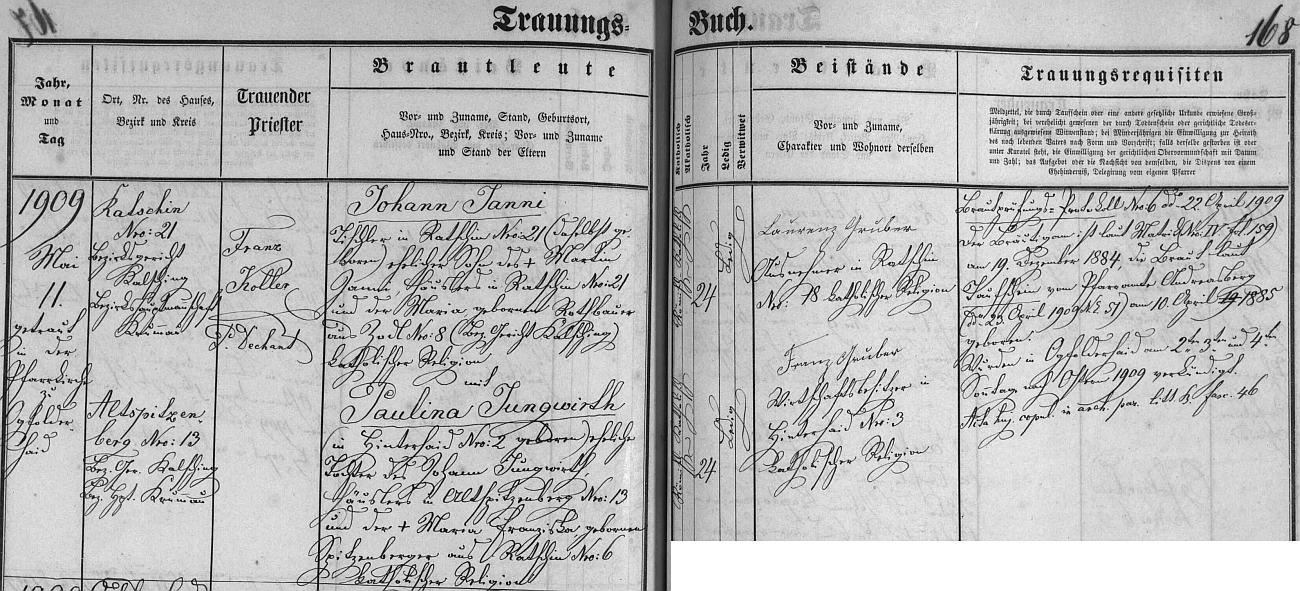 167
Trauungs-
Jahr,
Monat
und
Tag
Ort, Nr. des Hauses,
Bezirk und Kreis
Trauender
Priester
Brautleute
Vor- und Zuname, Stand, Geburtsort,
Haus-Nro., Bezirk, Kreis; Vor- und Zuname
und Stand der Eltern
1909
Mai
11.
getraut
in der
Pfarrkirche
zu
Ogfolder-
haid
Ratschin
Nro: 21
Bezirksgericht
Kalsching
Bezirkshauptmannschaft
Krumau
Altspitzen-
berg Nro: 13
Bez. Ger. Kalsching
Bez. Hpt. Krumau
Franz
Koller
P. Dechant
Johann Janni
Tischler in Ratschin Nro: 21 (daselbst ge
boren) ehelicher Sohn des + Martin
Janni Häuslers in Ratschin Nro: 21
und der Maria gebornen Rothbauer
aus Zodl No: 8 (Bez. Gericht Kalsching)
katholischer Religion
mit
Paulina Jungwirth
(in Hinterhaid Nro: 2 geboren) eheliche
Tochter des Johann Jungwirth,
Häuslers in Altspitzenberg Nro: 13
und der + Maria Franziska gebornen
Spitzenberger aus Ratschin Nro: 6
katholischer Religion
Buch.
168
Katholisch
Akatholisch
Jahr
Ledig
Verwitwet
Beistände
Vor- und Zuname,
Charakter und Wohnort derselben
Trauungsrequisiten
Meldzettel, die durch Taufschein oder eine andere gesetzliche Urkunde erwiesene Groß-
jährigkeit; bei verehelicht gewesenen der durch Todtenschein oder gerichtliche Todeser-
klärung ausgewiesene Witwenstand; bei Minderjährigen die Einwilligung zur Heirath
des noch lebenden Vaters nach Form und Vorschrift; falls derselbe gestorben ist oder
unter Kuratel steht, die Einwilligung der gerichtlichen Obervormundschaft mit Datum
und Zahl; das Aufgebot oder die Nachsicht von demselben, die Dispens von einem
Ehehinderniß, Delegirung vom eigenen Pfarrer
24
Ledig
Laurenz Gruber
Ausnehmer in Ratschin
Nro: 18 katholischer Religion
24
Ledig
Franz Gruber
Wirtschaftsbesitzer in
Hinterhaid Nro: 3
katholischer Religion
Brautprüfungs-Protokoll Nro: 6 dd. 22. April 1909
Der Bräutigam ist laut Matrik Nro. IV fol. 159)
am 19. Dezember 1884, die Braut (laut
Taufschein vom Pfarramte Andreasberg
April 1909 No 51) am 10. April 1885
geboren.
Wurden in Ogfolderhaid am 2ten 3ten und 4ten
Sonntag nach Ostern 1909 verkündigt.
Acta huj. copul. in arch. par. litt K fasc. 46